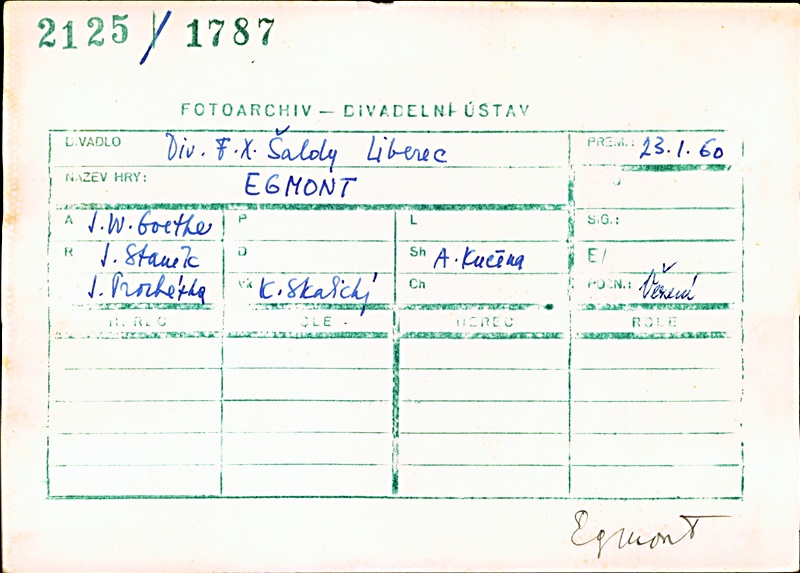 2125 / 1787
FOTOARCHIV — DIVADELNÍ ÚSTAV
DIVADLO Div. F. X. Šaldy Liberec PREM.: 23.1.60
NÁZEV HRY: EGMONT
A J. W. Goethe P L SIG.:
R J. Staněk D Sh A. Kučera E/
J. Procházka Vk K. Skalický Ch POZN.: Vězení
HEREC ROLE HEREC ROLE
Egmont